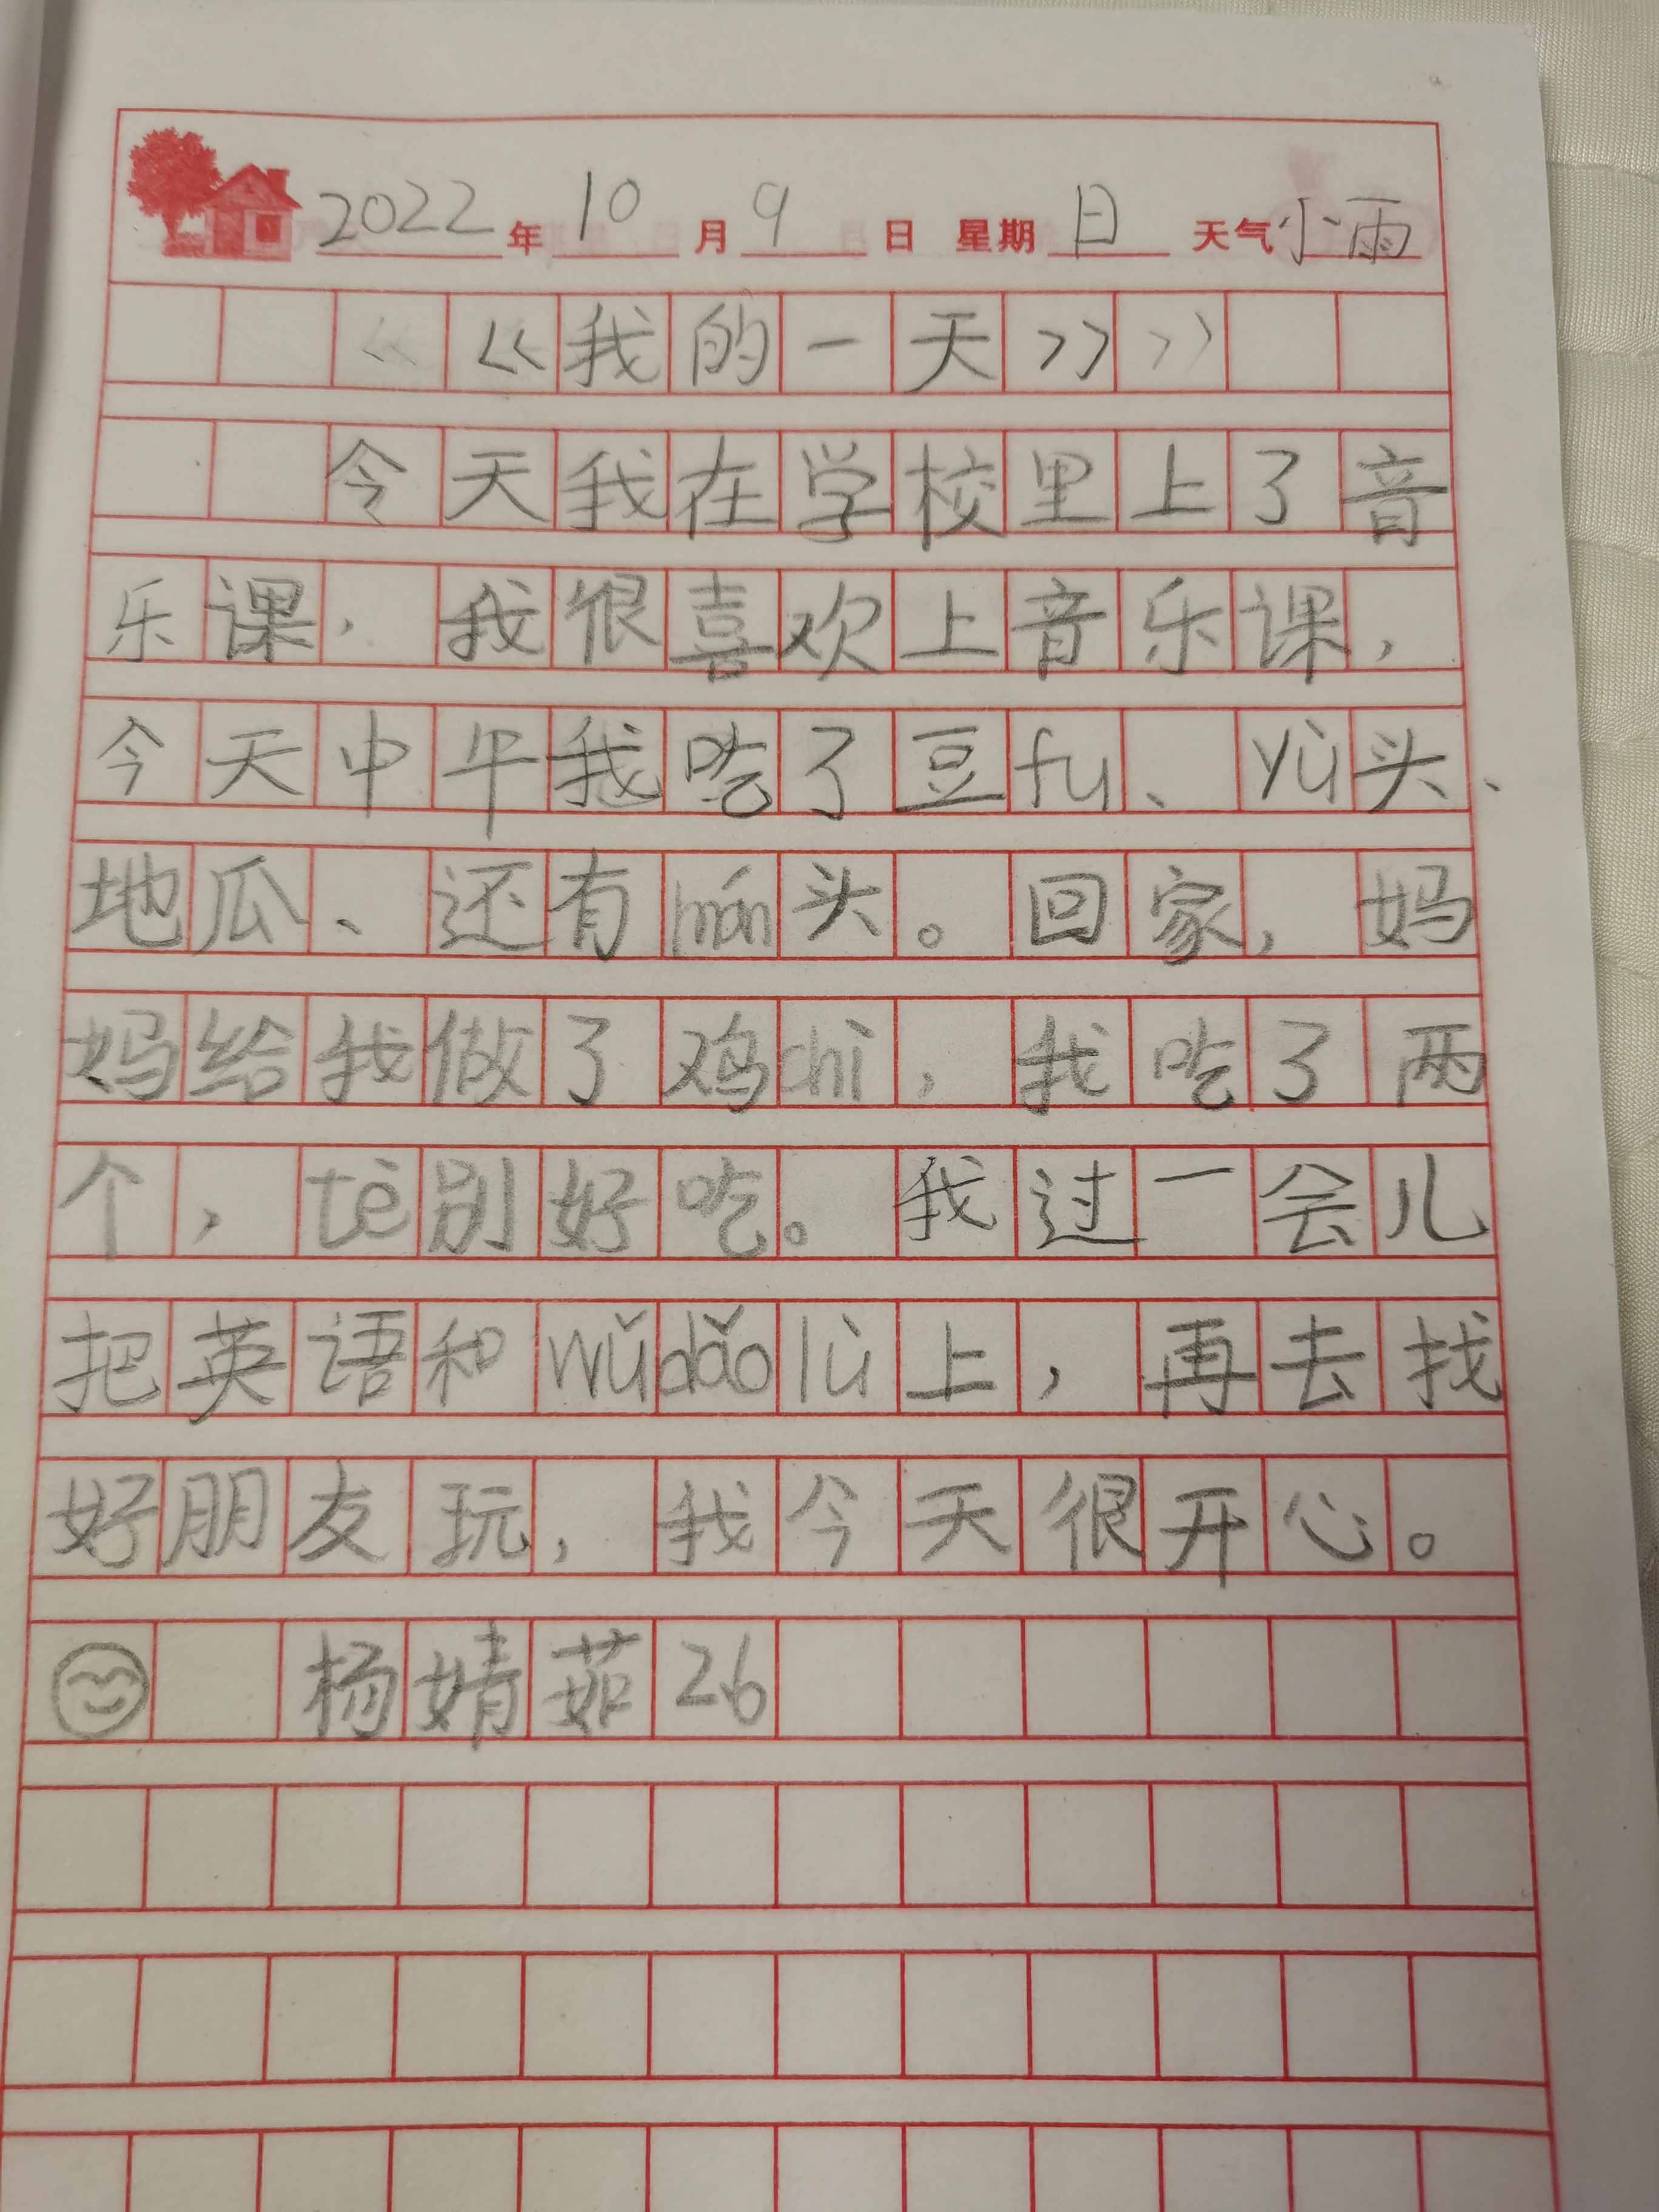 2022年10月9日 星期日 天气小雨
《《我的一天》》
今天我在学校里上了音
乐课，我很喜欢上音乐课，
今天中午我吃了豆fu、yù头、
地瓜、还有mán头。回家，妈
妈给我做了鸡chì，我吃了两
个，tè别好吃。我过一会儿
把英语和wǔdǎo lù上，再去找
好朋友玩，我今天很开心。
杨婧茹26